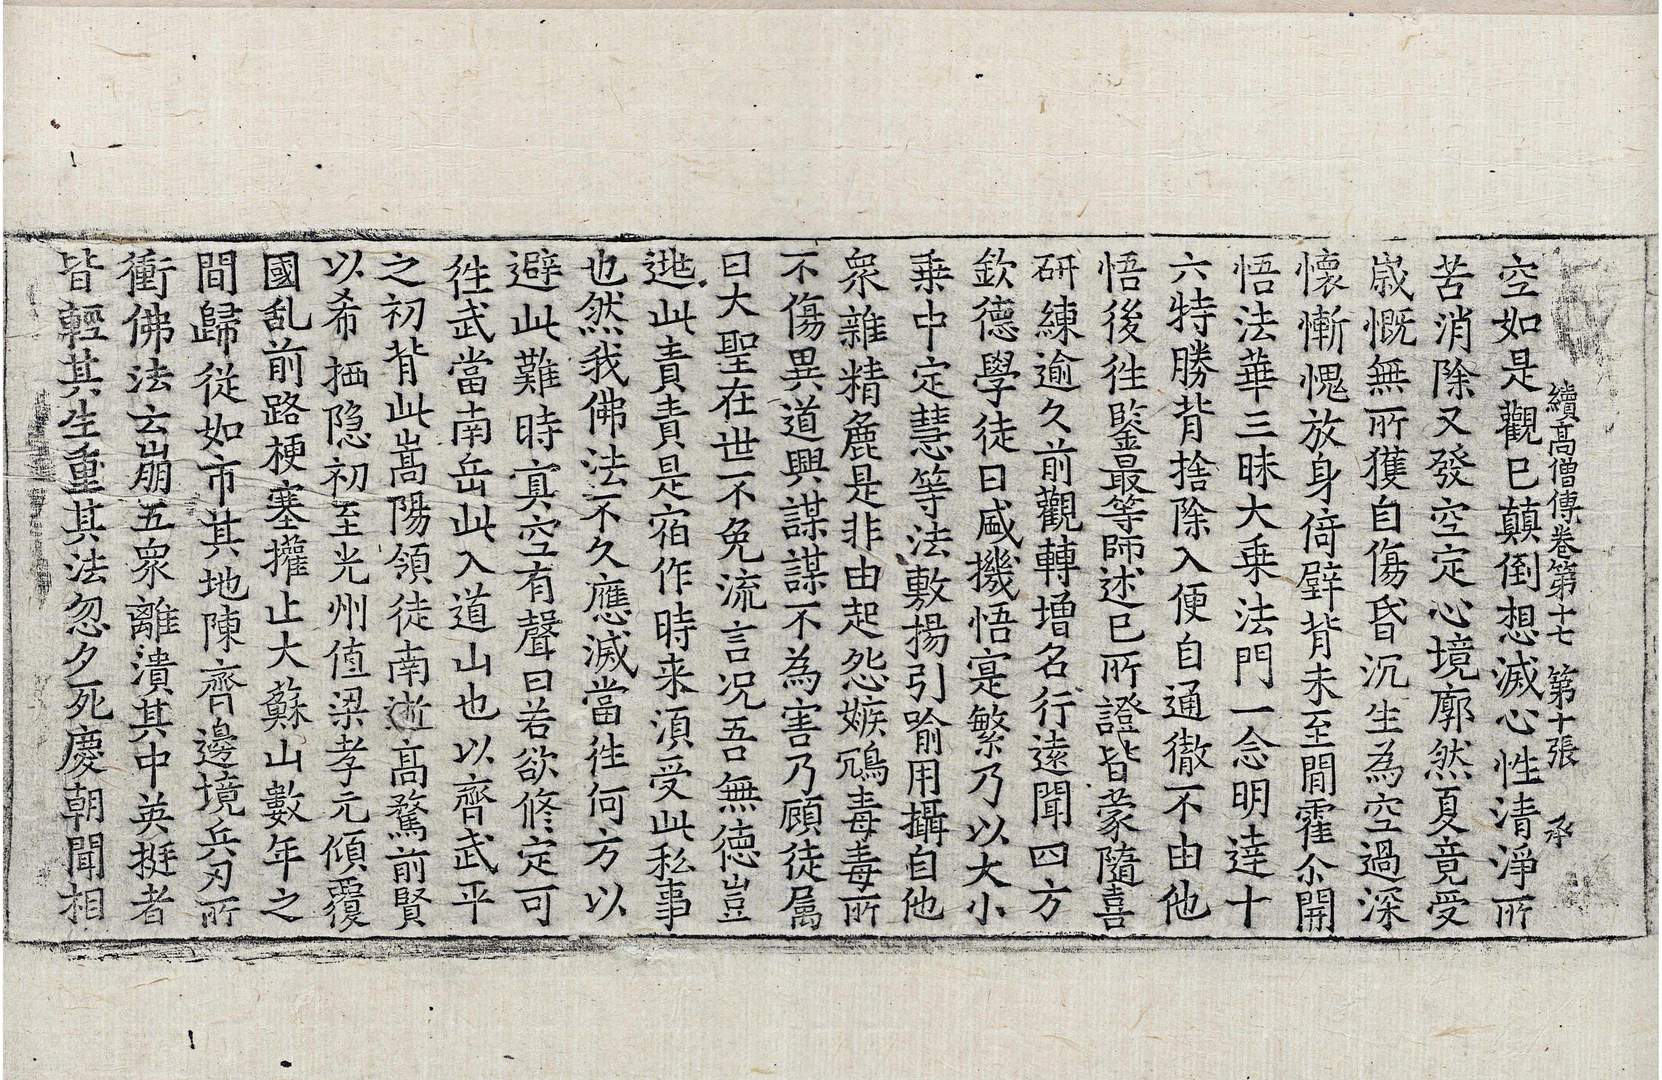 續高僧傳卷第十七 第十張 承
空如是觀已顛倒想滅心性清淨所
苦消除又發空定心境廓然夏竟受
歳慨無所獲自傷昏沉生為空過深
懷慚愧放身倚壁背未至間霍尒開
悟法華三昧大乗法門一念明逹十
六特勝背捨除入便自通徹不由他
悟後徃鑒最等師述已所證皆蒙隨喜
研練逾久前觀轉增名行逺聞四方
欽德學徒日盛機悟寔繁乃以大小
乗中定慧等法敷揚引喻用攝自他
衆雜精麁是非由起怨嫉鴆毒毒所
不傷異道興謀謀不為害乃顧徒属
曰大聖在世不免流言况吾無徳豈
逃此責責是宿作時来湏受此私事
也然我佛法不久應滅當徃何方以
避此難時冥空有聲曰若欲修定可
徃武當南岳此入道山也以齊武平
之初背此嵩陽領徒南逝高騖前賢
以希栖隐初至光州值梁孝元傾覆
國乱前路梗塞權止大蘇山數年之
間歸從如市其地陳齊邊境兵刃所
衝佛法云崩五衆離潰其中英挺者
皆輕其生重其法忽夕死慶朝聞相